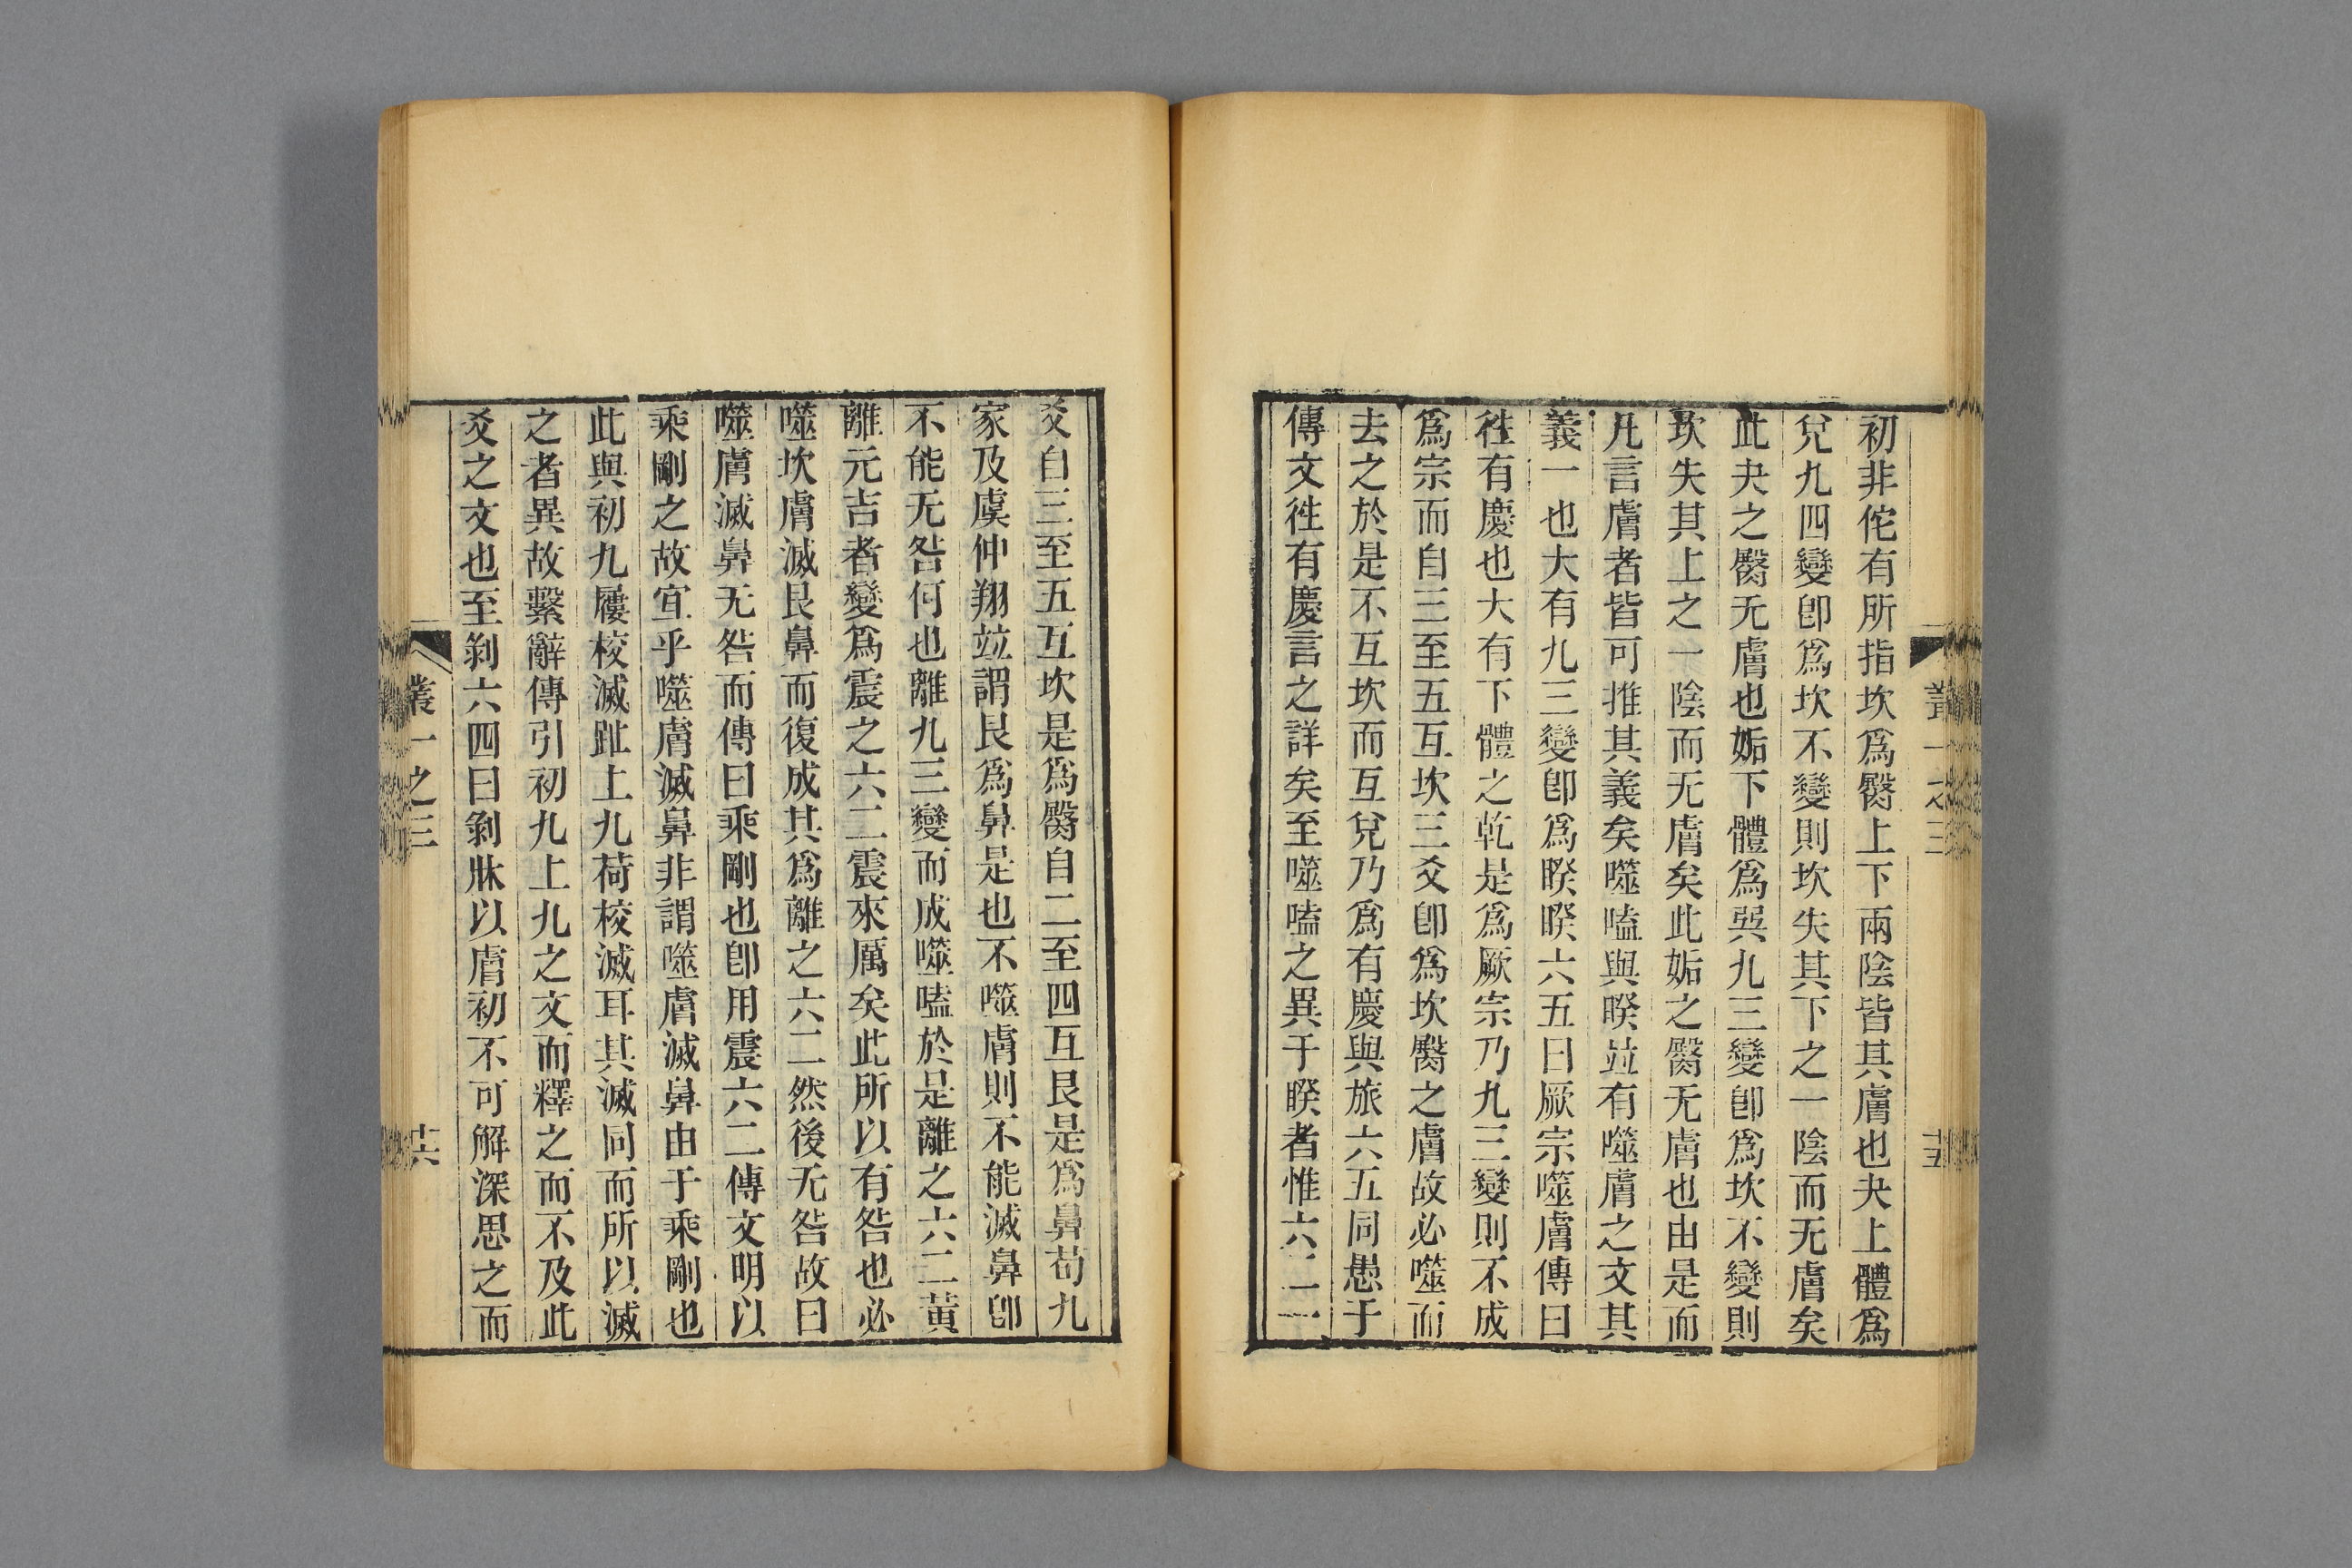 初非佗有所指坎爲臀上下兩陰皆其膚也夬上體爲
兌九四變卽爲坎不變則坎失其下之一陰而无膚矣
此夬之臀无膚也姤下體爲巽九三變卽爲坎不變則
坎失其上之一陰而无膚矣此姤之臀无膚也由是而
凡言膚者皆可推其義矣噬嗑與睽竝有噬膚之文其
義一也大有九三變卽爲睽睽六五曰厥宗噬膚傳曰
徃有慶也大有下體之乾是爲厥宗乃九三變則不成
爲宗而自三至五互坎三爻卽爲坎臀之膚故必噬而
去之於是不互坎而互兌乃爲有慶與旅六五同惎于
傳文徃有慶言之詳矣至噬嗑之異于睽者惟六二一
叢一之三
十五
爻自三至五互坎是爲臀自二至四互艮是爲鼻荀九
家及虞仲翔竝謂艮爲鼻是也不噬膚則不能滅鼻卽
不能无咎何也離九三變而成噬嗑於是離之六二黃
離元吉者變爲震之六二震來厲矣此所以有咎也必
噬坎膚滅艮鼻而復成其爲離之六二然後无咎故曰
噬膚滅鼻无咎而傳曰乘剛也卽用震六二傳文明以
乘剛之故宜乎噬膚滅鼻非謂噬膚滅鼻由于乘剛也
此與初九屨校滅趾上九荷校滅耳其滅同而所以滅
之者異故繫辭傳引初九上九之文而釋之而不及此
爻之文也至剝六四曰剝牀以膚初不可解深思之而
叢一之三
十六